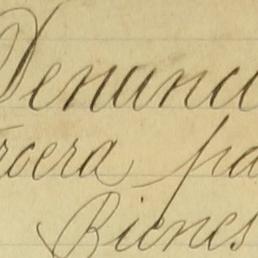 Denunci
rcera pa
Bienes